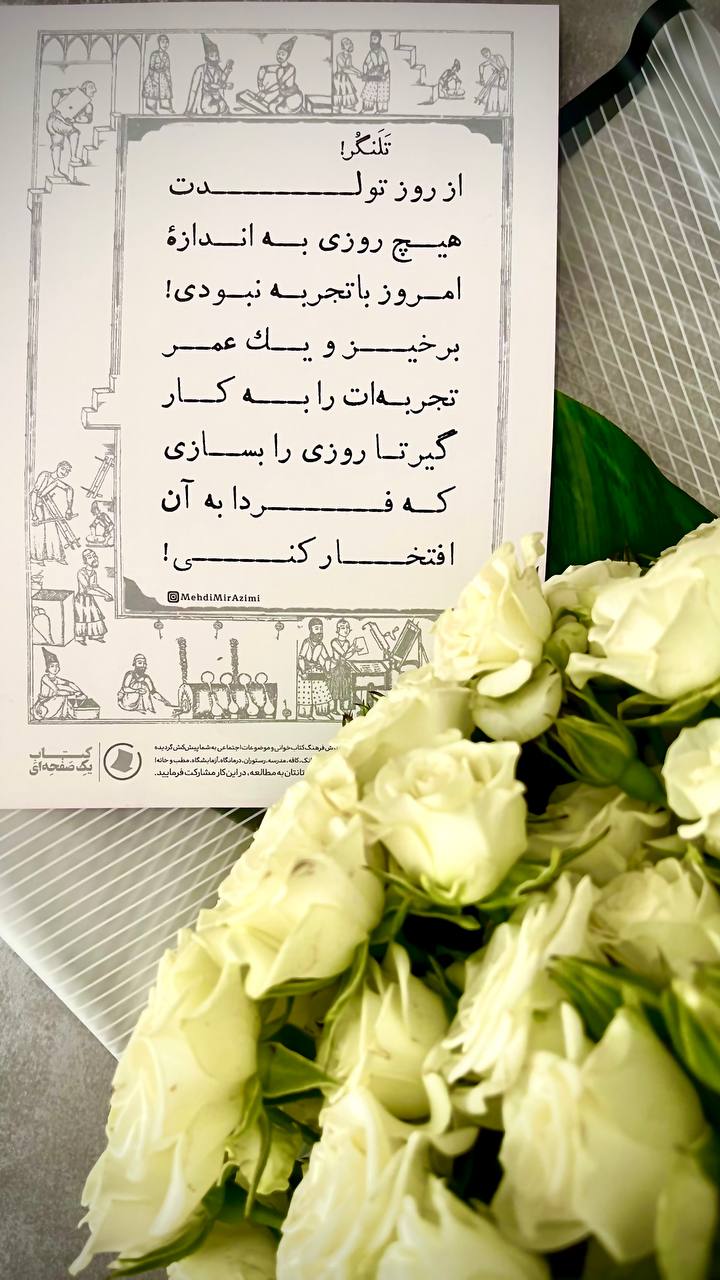 تَلَنگُر!
از روز تولدت
هیچ روزی به اندازهٔ
امروز باتجربه نبودی!
برخیز و یک عمر
تجربه‌ات را به کار
گیر تا روزی را بسازی
که فردا به آن
افتخار کنی!
MehdiMirAzimi
کتاب
یک صفحه‌ای
فرهنگ کتاب‌خوانی و موضوعات اجتماعی به شما پیش‌کش گردیده
کافه، مدرسه، رستوران، درمانگاه، آزمایشگاه، مطب و خانه!
به مطالعه، در این کار مشارکت فرمایید.